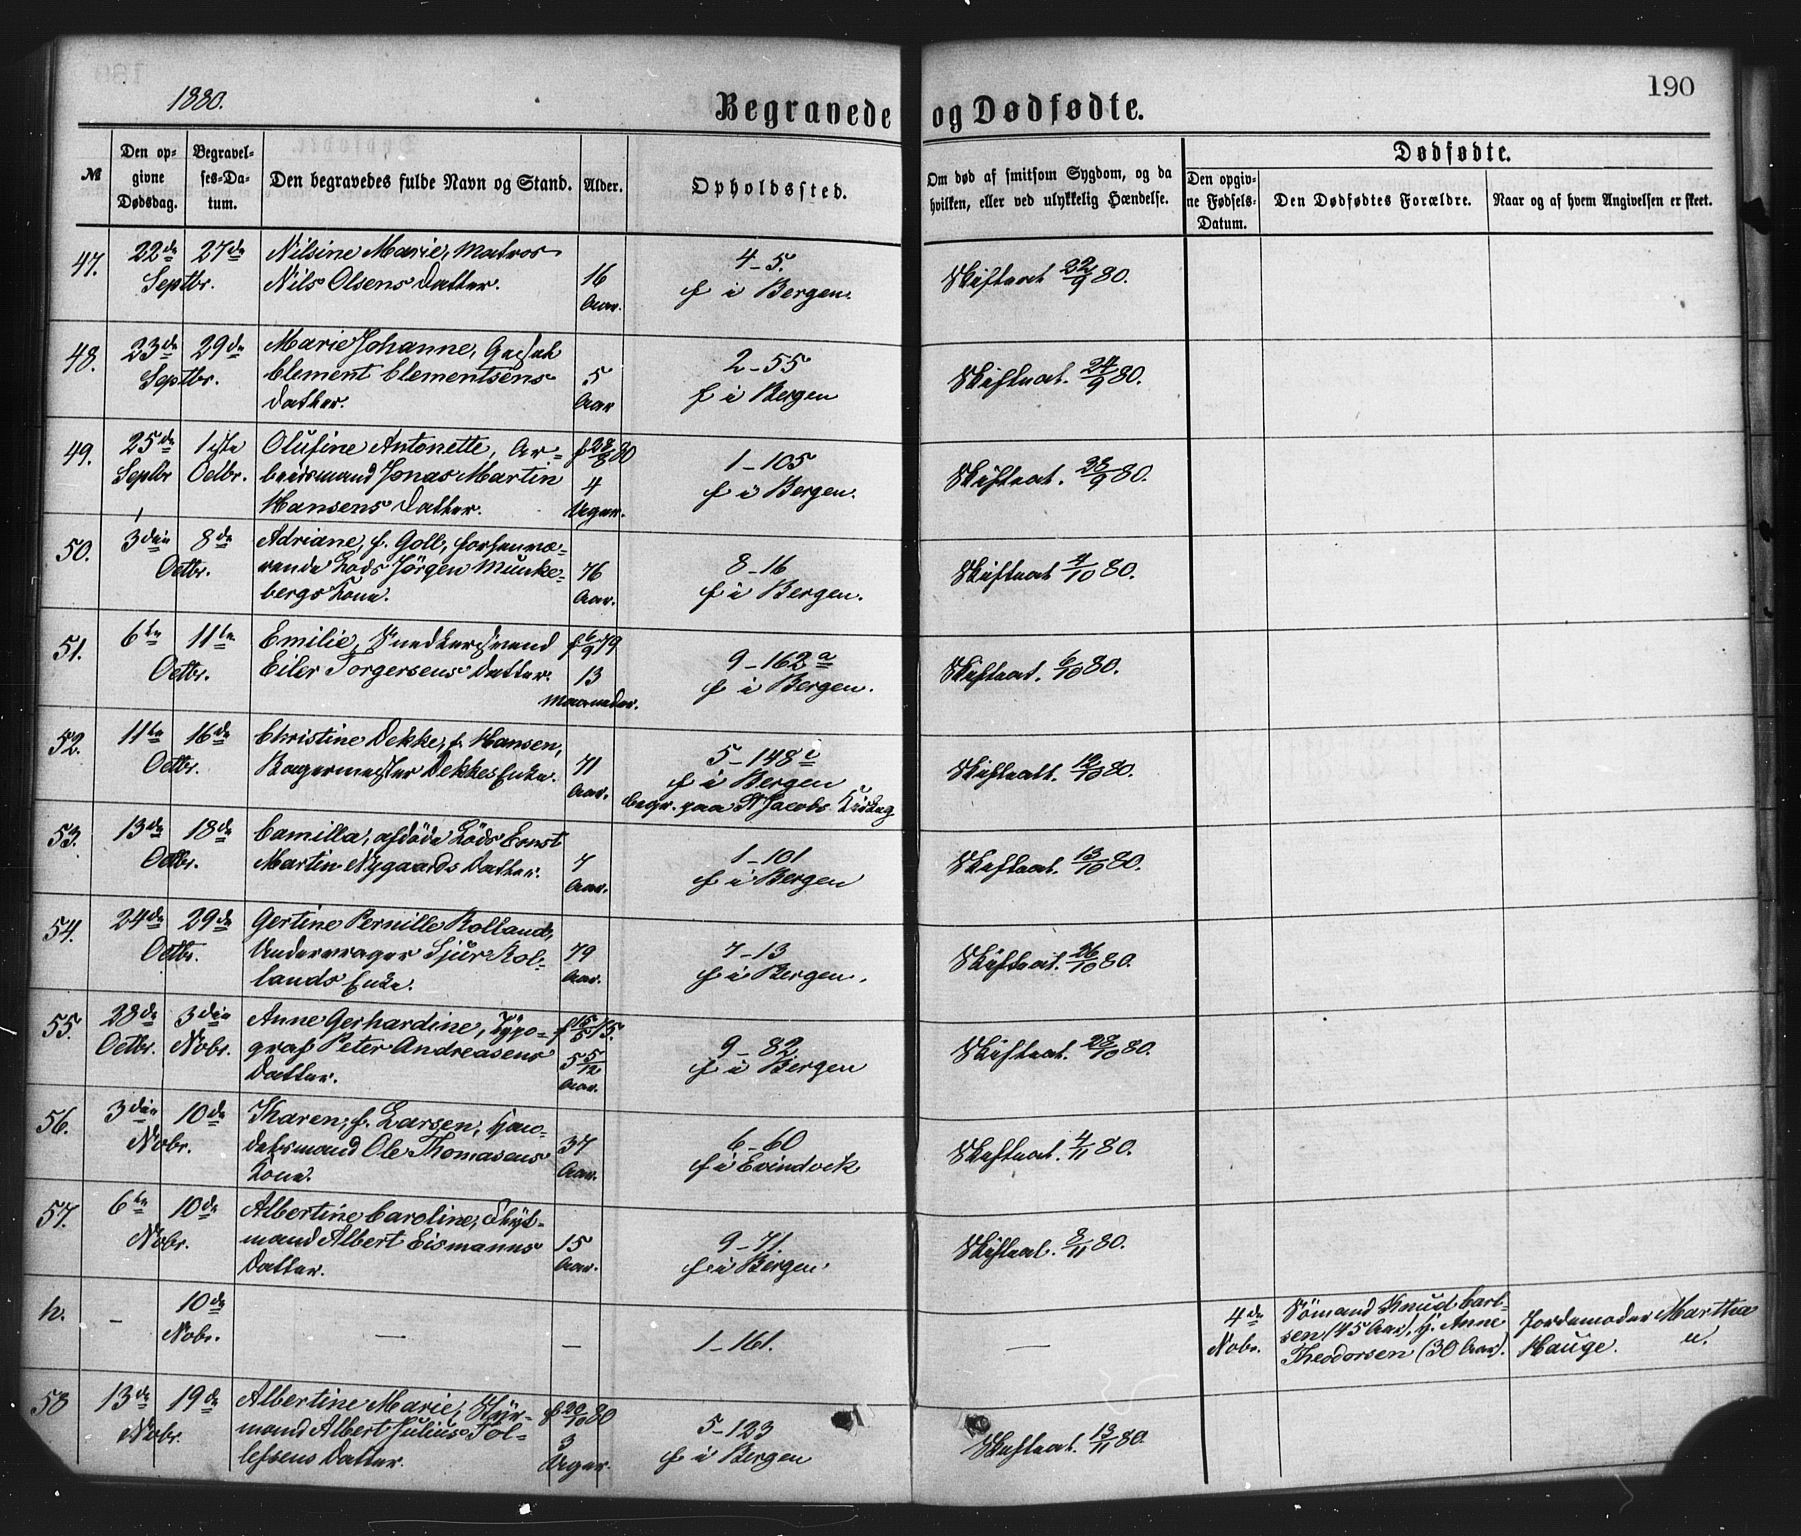 190
1880.
Begravede og Dødfødte.
№
Den opgivne Dødsdag.
Begravelses-Datum.
Den begravedes fulde Navn og Stand.
Alder.
Opholdssted.
Om død af smitsom Sygdom, og da hvilken, eller ved ulykkelig Hændelse.
Dødfødte.
Den opgivne Fødsels-Datum.
Den Dødfødtes Forældre.
Naar og af hvem Angivelsen er skeet.
47. 22de 27de Nilsine Marie, Matros 4-5.
Septbr. Nils Olsens Datter. 16 Aar. f i Bergen. Skifteat 22/9 80.
48. 23de 29de Marie Johanne, 2-55
Septbr. Clement Clementsens 5 f i Bergen Skifteat. 24/9 80.
Datter. Aar
49. 25de 1ste Olufine Antonette, Ar- f 28/8 80 1-105
Septbr Octbr. beidsmand Jonas Martin 4 f i Bergen. Skifteat. 28/9 80.
Hansens Datter. Uger.
50. 3die 8de Adriane, f. Goll, forhenvæ- 8-16
Octbr. rende Lods Jörgen Munke- 76 f i Bergen. Skifteat 4/10 80.
bergs Kone. Aar.
51. 6te 11te Emilie, Snedkersvend f 6/9 79 9-162a
Octbr. Eiler Torgersens Datter. 13 f i Bergen. Skifteat. 6/10 80.
Maaneder.
52. 11te 16de Christine Dekke, f. Hansen, 5-148c
Octbr. Bagermester Dekkes Enke. 71 Aar. f i Bergen Skifteatt. 12/10 80.
begr. paa St Jacobs Kirkeg
53. 13de 18de Camilla, afdöde Lods Ernst 1-101
Octbr. Martin Nygaards Datter. 7 Aar. f i Bergen Skifteat. 13/10 80.
54. 24de 29de Gertine Pernille Rolland, 7-13
Octbr. Undervrager Sjur Rol- 79 f i Bergen. Skifteat. 26/10 80.
lands Enke. Aar.
55. 28de 3die Anne Gerhardine, Typo- f 15/5 75. 9-82
Octbr. Nobr. graf Peter Andreasens 5 5/12 f i Bergen Skifteat. 28/10 80.
Datter. Aar.
56. 3die 10de Karen, f. Larsen, Han- 6-60
Nobr. delsmand Ole Thomasens 37 f i Evindvik Skifteat. 4/11 80.
Kone. Aar.
57. 6te 10de Albertine Caroline, 9-71.
Nobr. mand Albert Eismanns 15 f i Bergen. Skifteat. 8/11 80.
Datter. Aar.
h. - 10de Nobr. — — 1-161. — 4de Nobr. Sömand Knud Carl-
sen (45 Aar), h. Anne Jordemoder Marthea
Theodorsen (30 Aar). Hauge.
58 13de 19de Albertine Marie, Styr- f 20/10 80 5-123
Nobr. mand Albert Julius Tol- 3 f i Bergen Skifteat. 13/11 80.
lefsens Datter. Uger.